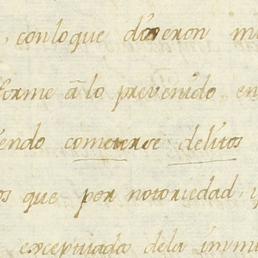 , con lo que dixeron m
forme â lo prevenido en
endo cometerse delitos
os que por notoriedad y
exceptuada dela inmu